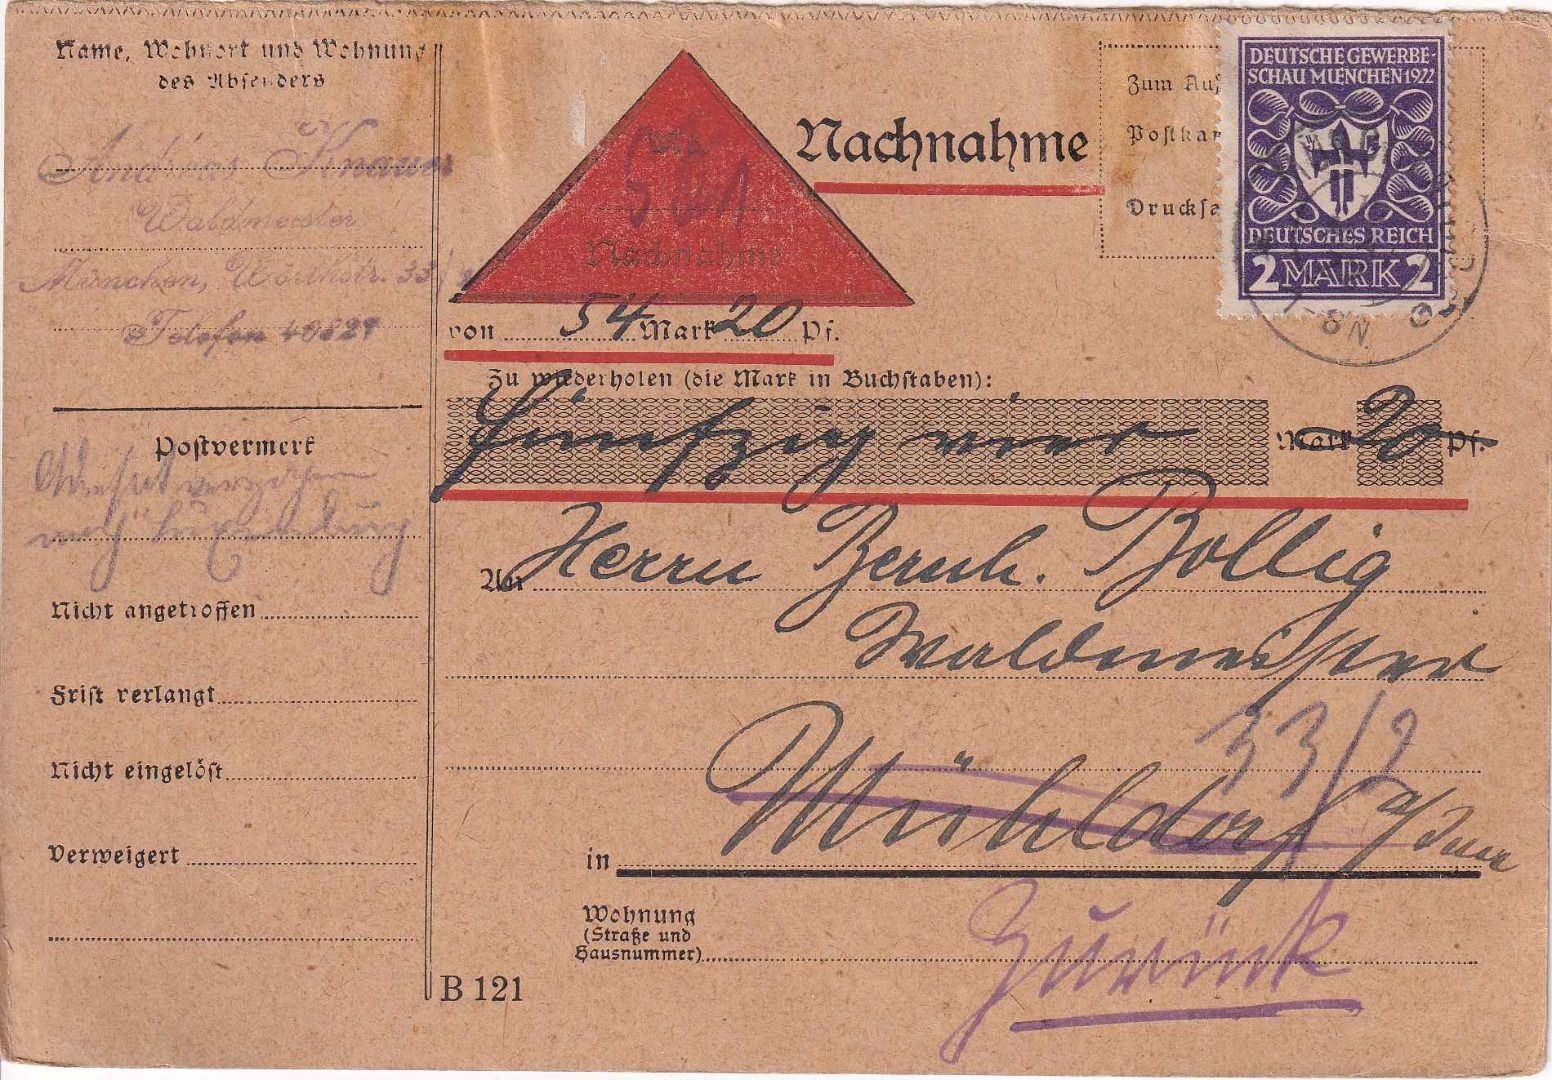 Name, Wohnort und Wohnung
des Absenders
Andreas Knauer
Waldmeister
München, Wörthstr. 33/
Telefon 40829
Postvermerk
verzogen
nach Luxemburg
Nicht angetroffen
Frist verlangt
Nicht eingelöst
Verweigert
Nachnahme
Nachnahme
von 54 Mark 20 Pf.
Zu wiederholen (die Mark in Buchstaben):
fünfzig vier Mark 20 Pf.
An Herrn Bernh. Bollig
Waldmeister
33/2
in Mühldorf a/Inn
Zurück
Wohnung
(Straße und
Hausnummer)
B 121
Zum Auf
Postkar
Drucksa
DEUTSCHE GEWERBE-
SCHAU MUENCHEN 1922
DEUTSCHES REICH
2 MARK 2